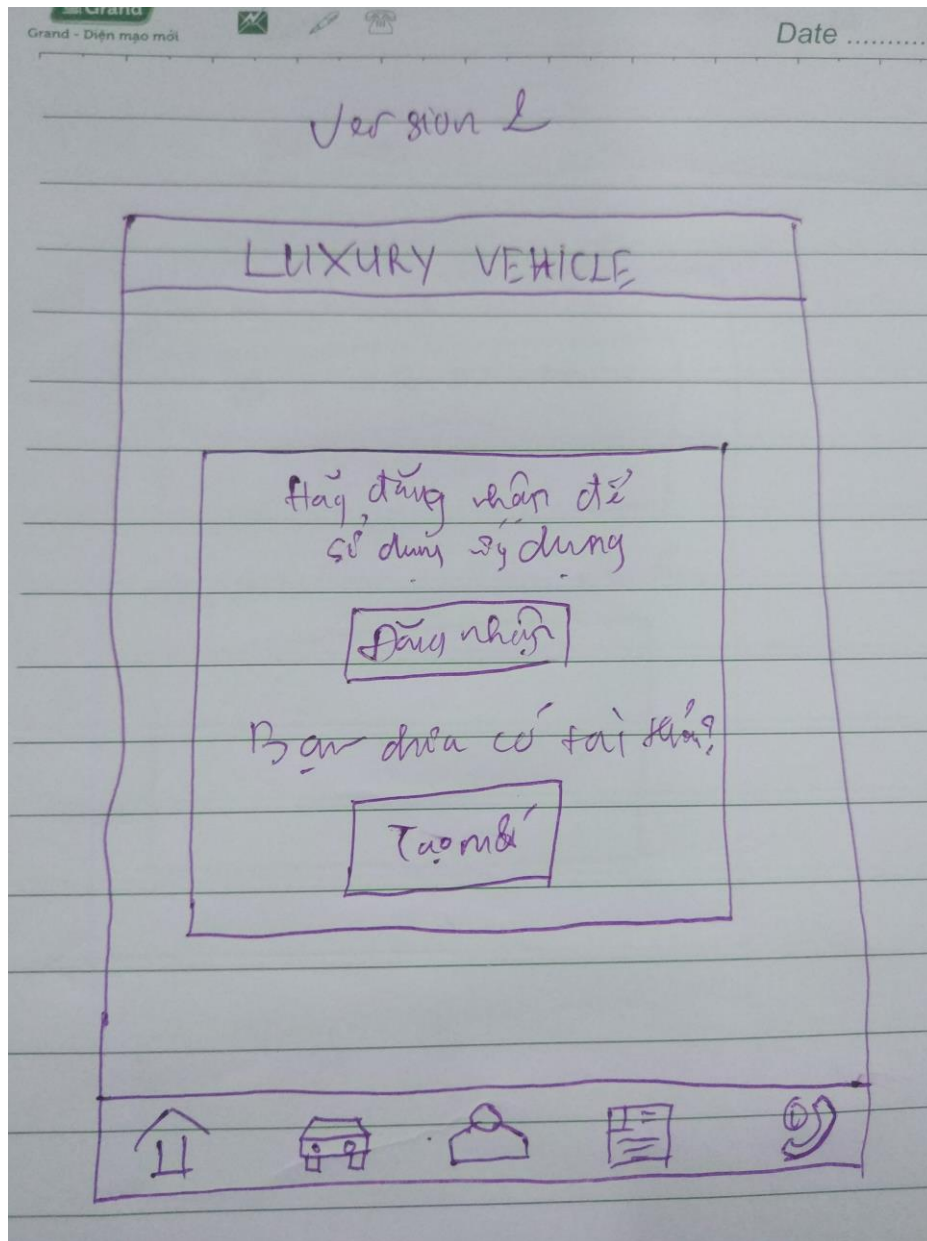 Grand
Grand - Diện mạo mới
Date ..........
Version 2
LUXURY VEHICLE
Hãy đăng nhập để
sử dụng ứng dụng
Đăng nhập
Bạn chưa có tài khoản?
Tạo mới